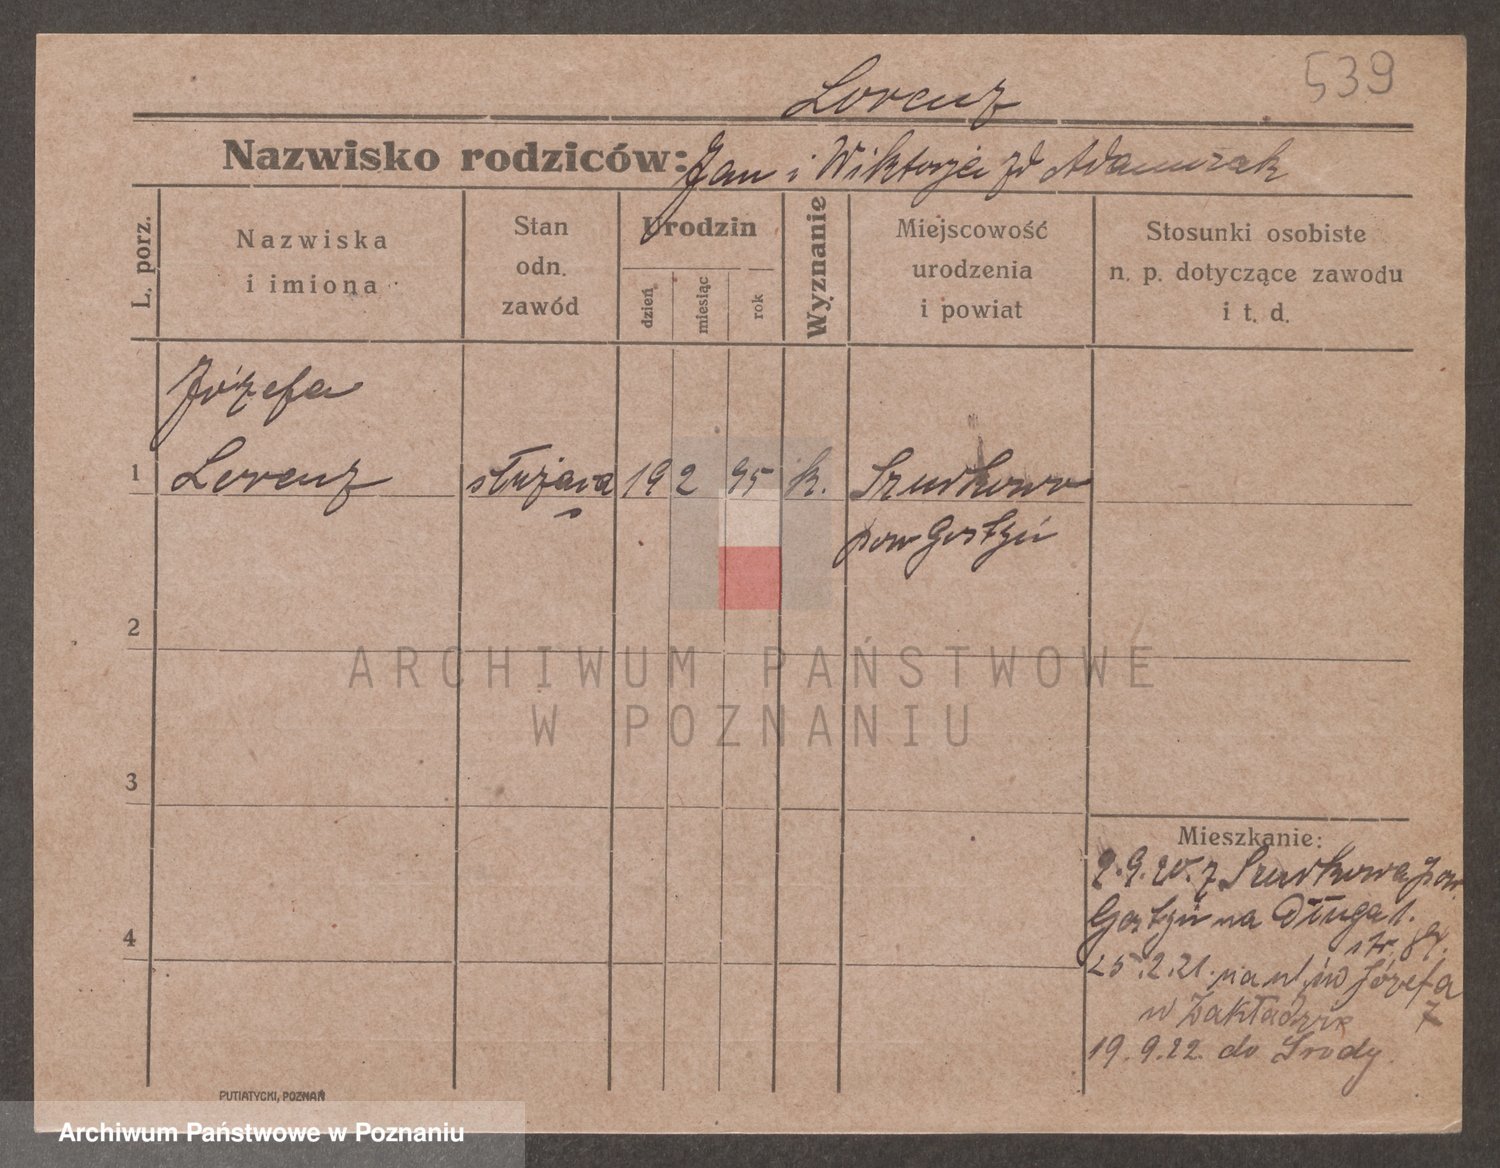 539
Lorenz
Nazwisko rodziców: Jan i Wiktorja zd Adamczak
L. porz.
Nazwiska i imiona
Stan odn. zawód
Urodzin
dzień
miesiąc
rok
Wyznanie
Miejscowość urodzenia i powiat
Stosunki osobiste n. p. dotyczące zawodu i t. d.
Józefa
1 Lorenz służąca 19 2 95 k. Szurkowo
pow Gostyń
2
3
4
ARCHIWUM PAŃSTWOWE
W POZNANIU
Mieszkanie:
2.9.20. z Szurkowa pow.
Gostyń na Długa 1.
25.2.21. na ul. św Józefa
7
w Zakładzie
19.9.22. do Środy.
PUTIATYCKI, POZNAŃ
Archiwum Państwowe w Poznaniu